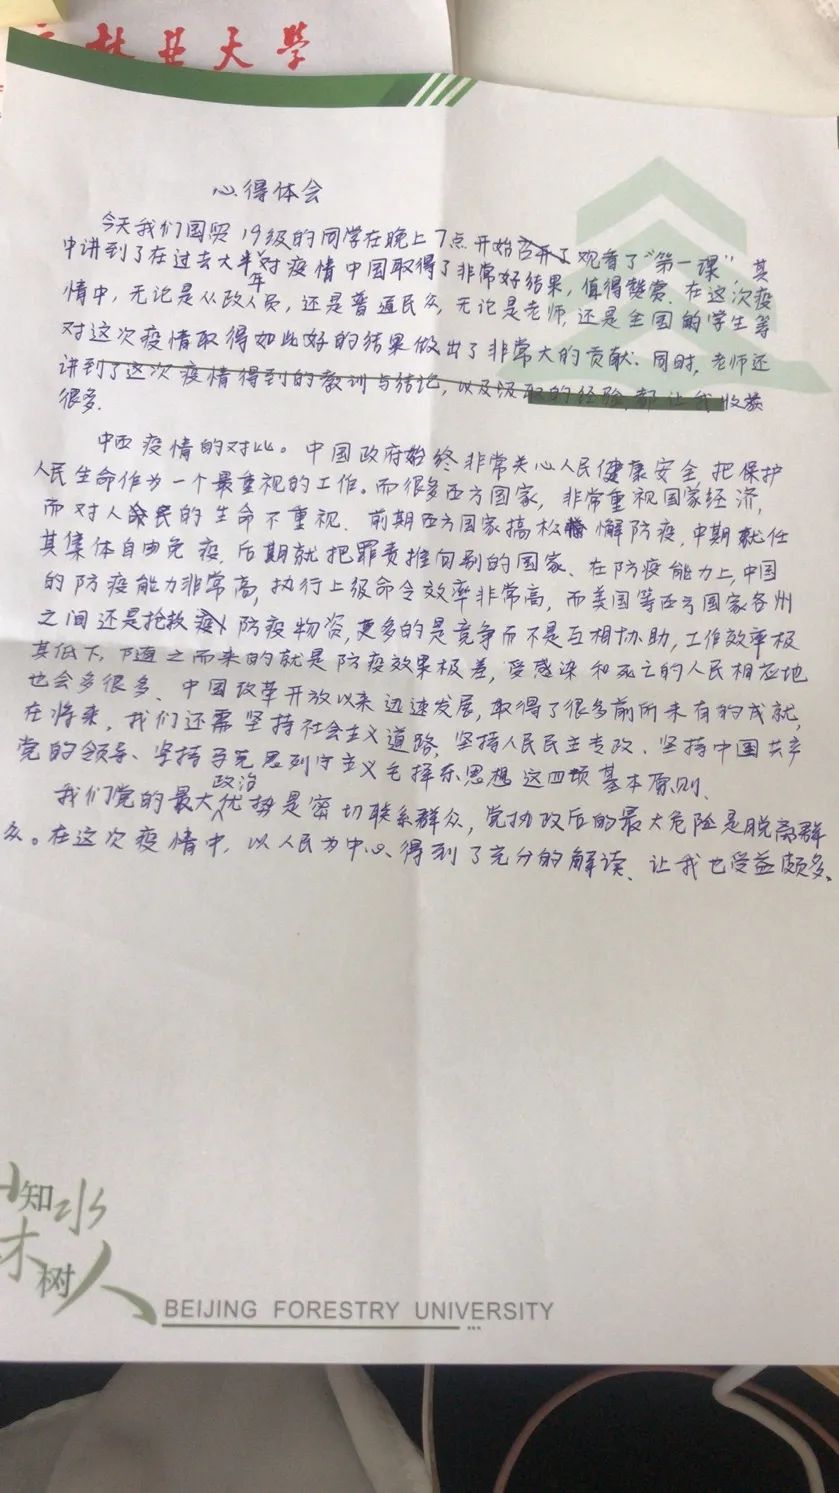 林业大学
心得体会
今天我们国贸19级的同学在晚上7点开始召开了观看了“第一课”,其
中讲到了在过去大半年对疫情中国取得了非常好结果,值得赞赏.在这次疫
情中,无论是从政人员,还是普通民众,无论是老师,还是全国的学生等
对这次疫情取得如此好的结果做出了非常大的贡献.同时,老师还
讲到了这次疫情得到的教训与结论,以及汲取的经验,都让我收获
很多.
中西疫情的对比。中国政府始终非常关心人民健康安全,把保护
人民生命作为一个最重视的工作.而很多西方国家,非常重视国家经济,
而对人民的生命不重视.前期西方国家搞松懈防疫,中期就任
其集体自由免疫,后期就把罪责推向别的国家、在防疫能力上,中国
的防疫能力非常高,执行上级命令效率非常高,而美国等西方国家各州
之间还是抢救防疫物资,更多的是竞争而不是互相协助,工作效率极
其低下,随之而来的就是防疫效果极差,受感染和死亡的人民相应地
也会多很多、中国改革开放以来迅速发展,取得了很多前所未有的成就,
在将来,我们还需坚持社会主义道路,坚持人民民主专政、坚持中国共产
党的领导、坚持马克思列宁主义毛泽东思想这四项基本原则.
我们党的最大政治优势是密切联系群众,党执政后的最大危险是脱离群
众。在这次疫情中,以人民为中心得到了充分的解读、让我也受益颇多、
知水
木树人
BEIJING FORESTRY UNIVERSITY